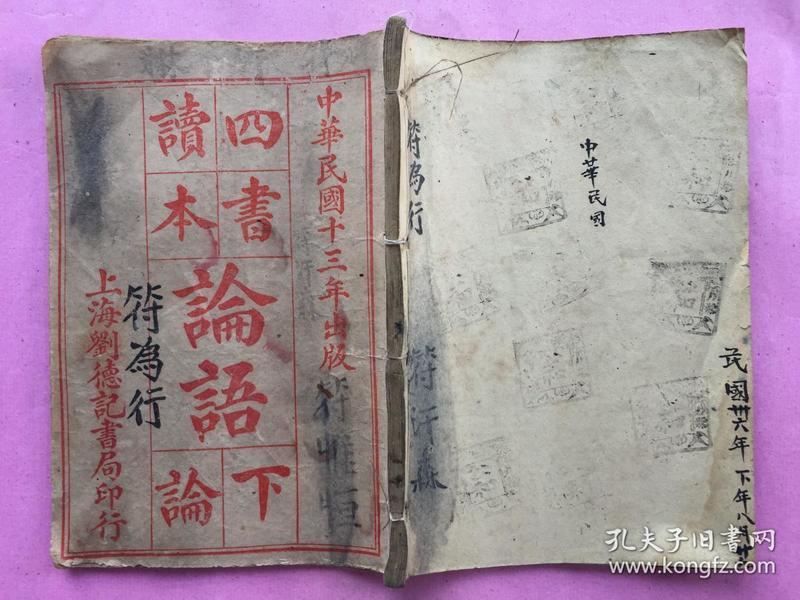 中華民國十三年出版
四書
讀本
論語
下
論
上海劉德記書局印行
符為行
符惟恒
符為行
符汗森
中華民國
民國卅六年 下年八月廿
孔夫子旧书网
www.kongfz.com